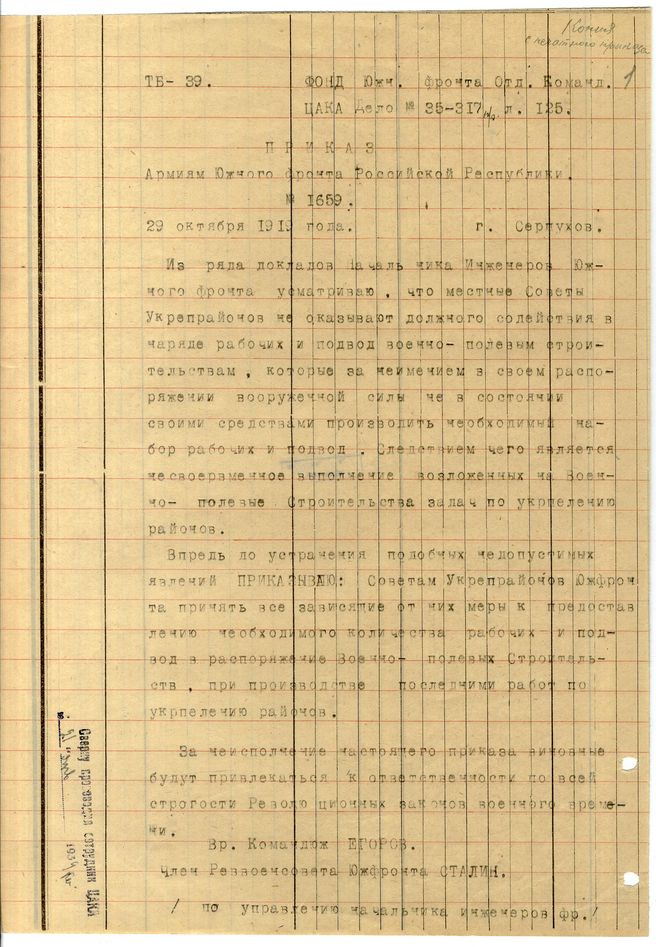 Копия
с печатного приказа
1
ТБ- 39. ФОНД Южн. фронта Отд. Команд.
ЦАКА Дело № 35-317 л. 125.
ПРИКАЗ
Армиям Южного фронта Российской Республики.
№ 1659.
29 октября 1919 года. г. Серпухов.
Из ряда докладов Началь ника Инженеров Юж-
ного фронта усматриваю, что местные Советы
Укрепрайонов не оказывают должного содействия в
наряде рабочих и подвод военно- полевым строи-
тельствам, которые за неимением в своем распо-
ряжении вооруженной силы не в состоянии
своими средствами производить необходимый на-
бор рабочих и подвод. Следствием чего является
несвоервменное выполнение возложенных на Воен-
но- полевые Строительства задач по укрпелению
районов.
Впредь до устранения подобных недопустимых
явлений ПРИКАЗЫВАЮ: Советам Укрепрайонов Южфрон
та принять все зависящие от них меры к предостав
лению необходимого количества рабочих и под-
вод в распоряжение Военно- полевых Строитель-
ств, при производстве последними работ по
укрпелению районов.
За неисполнение настоящего приказа виновные
будут привлекаться к ответственности по всей
строгости Револю ционных законов военного време-
ни.
Вр. Командюж ЕГОРОВ.
Член Реввоенсовета Южфронта СТАЛИН.
/ по управлению начальника инженеров фр./
Сверку производил сотрудник ЦАКА